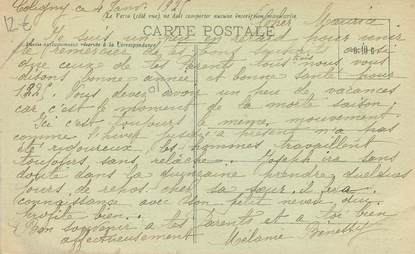 12€
Coligny ce 4 Janv. 1925
Le Verso (côté vue) ne doit comporter aucune inscription manuscrite
Cher Maurice
CARTE POSTALE
Je suis un peu en retard pour venir
te remercier de tes bons souhaits ainsi
que ceux de tes parents tous nous vous
disons bonne année et bonne santé pour
1925. Vous devez avoir un peu de vacances
car c'est le moment de la morte saison
Ici c'est toujours le même mouvement
comme l'hiver jusqu'à présent n'a pas
été rigoureux les hommes travaillent
toujours sans relâche. Joseph ira sans
doute dans la quinzaine prendre quelques
jours de repos chez sa sœur il fera
connaissance avec son petit neveu qui
profite bien.
Bon souvenir à tes parents et à toi bien
affectueusement Mélanie